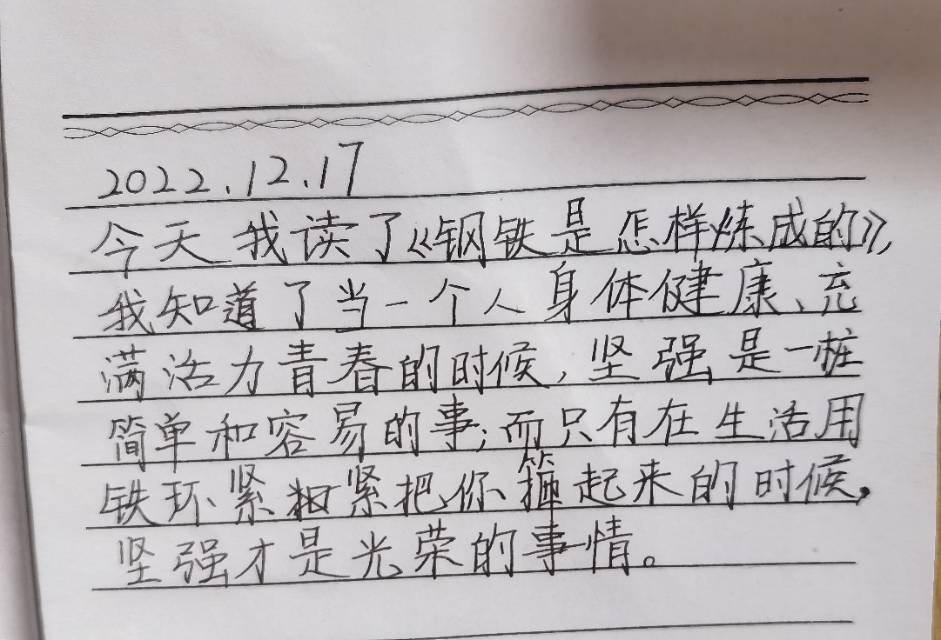 2022.12.17
今天我读了《钢铁是怎样炼成的》,
我知道了当一个人身体健康、充
满活力青春的时候,坚强是一桩
简单和容易的事;而只有在生活用
铁环紧紧把你箍起来的时候,
坚强才是光荣的事情。